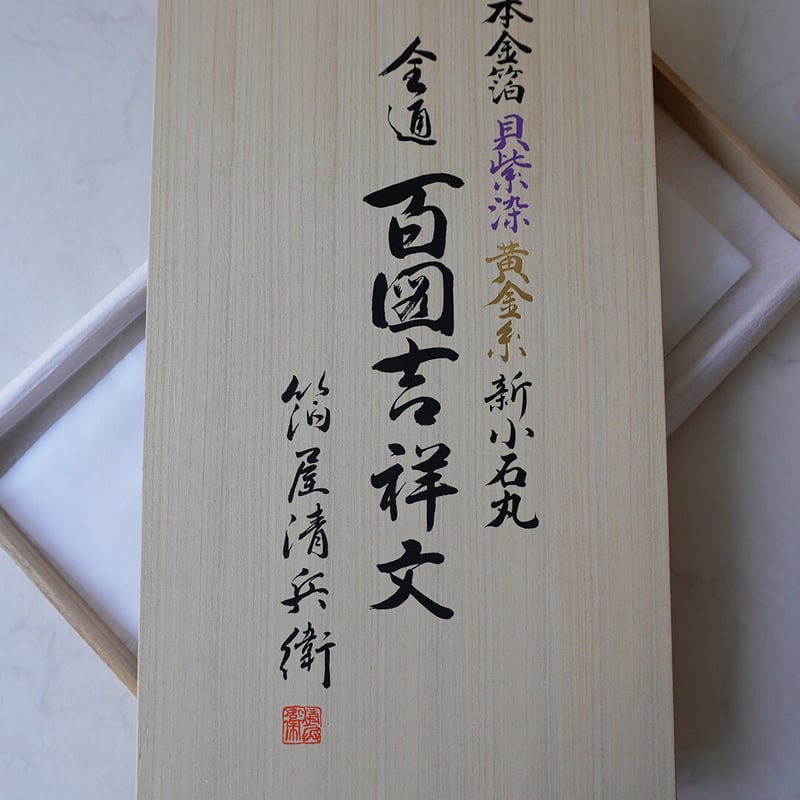 本金箔 貝紫染 黄金糸 新小石丸
全通 百図吉祥文
箔屋清兵衛